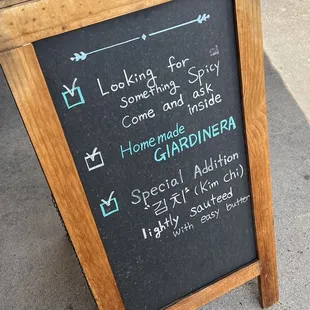 Looking for
something Spicy
Come and ask
inside
Homemade
GIARDINERA
Special Addition
"김치" (Kim Chi)
lightly sauteed
with easy butter